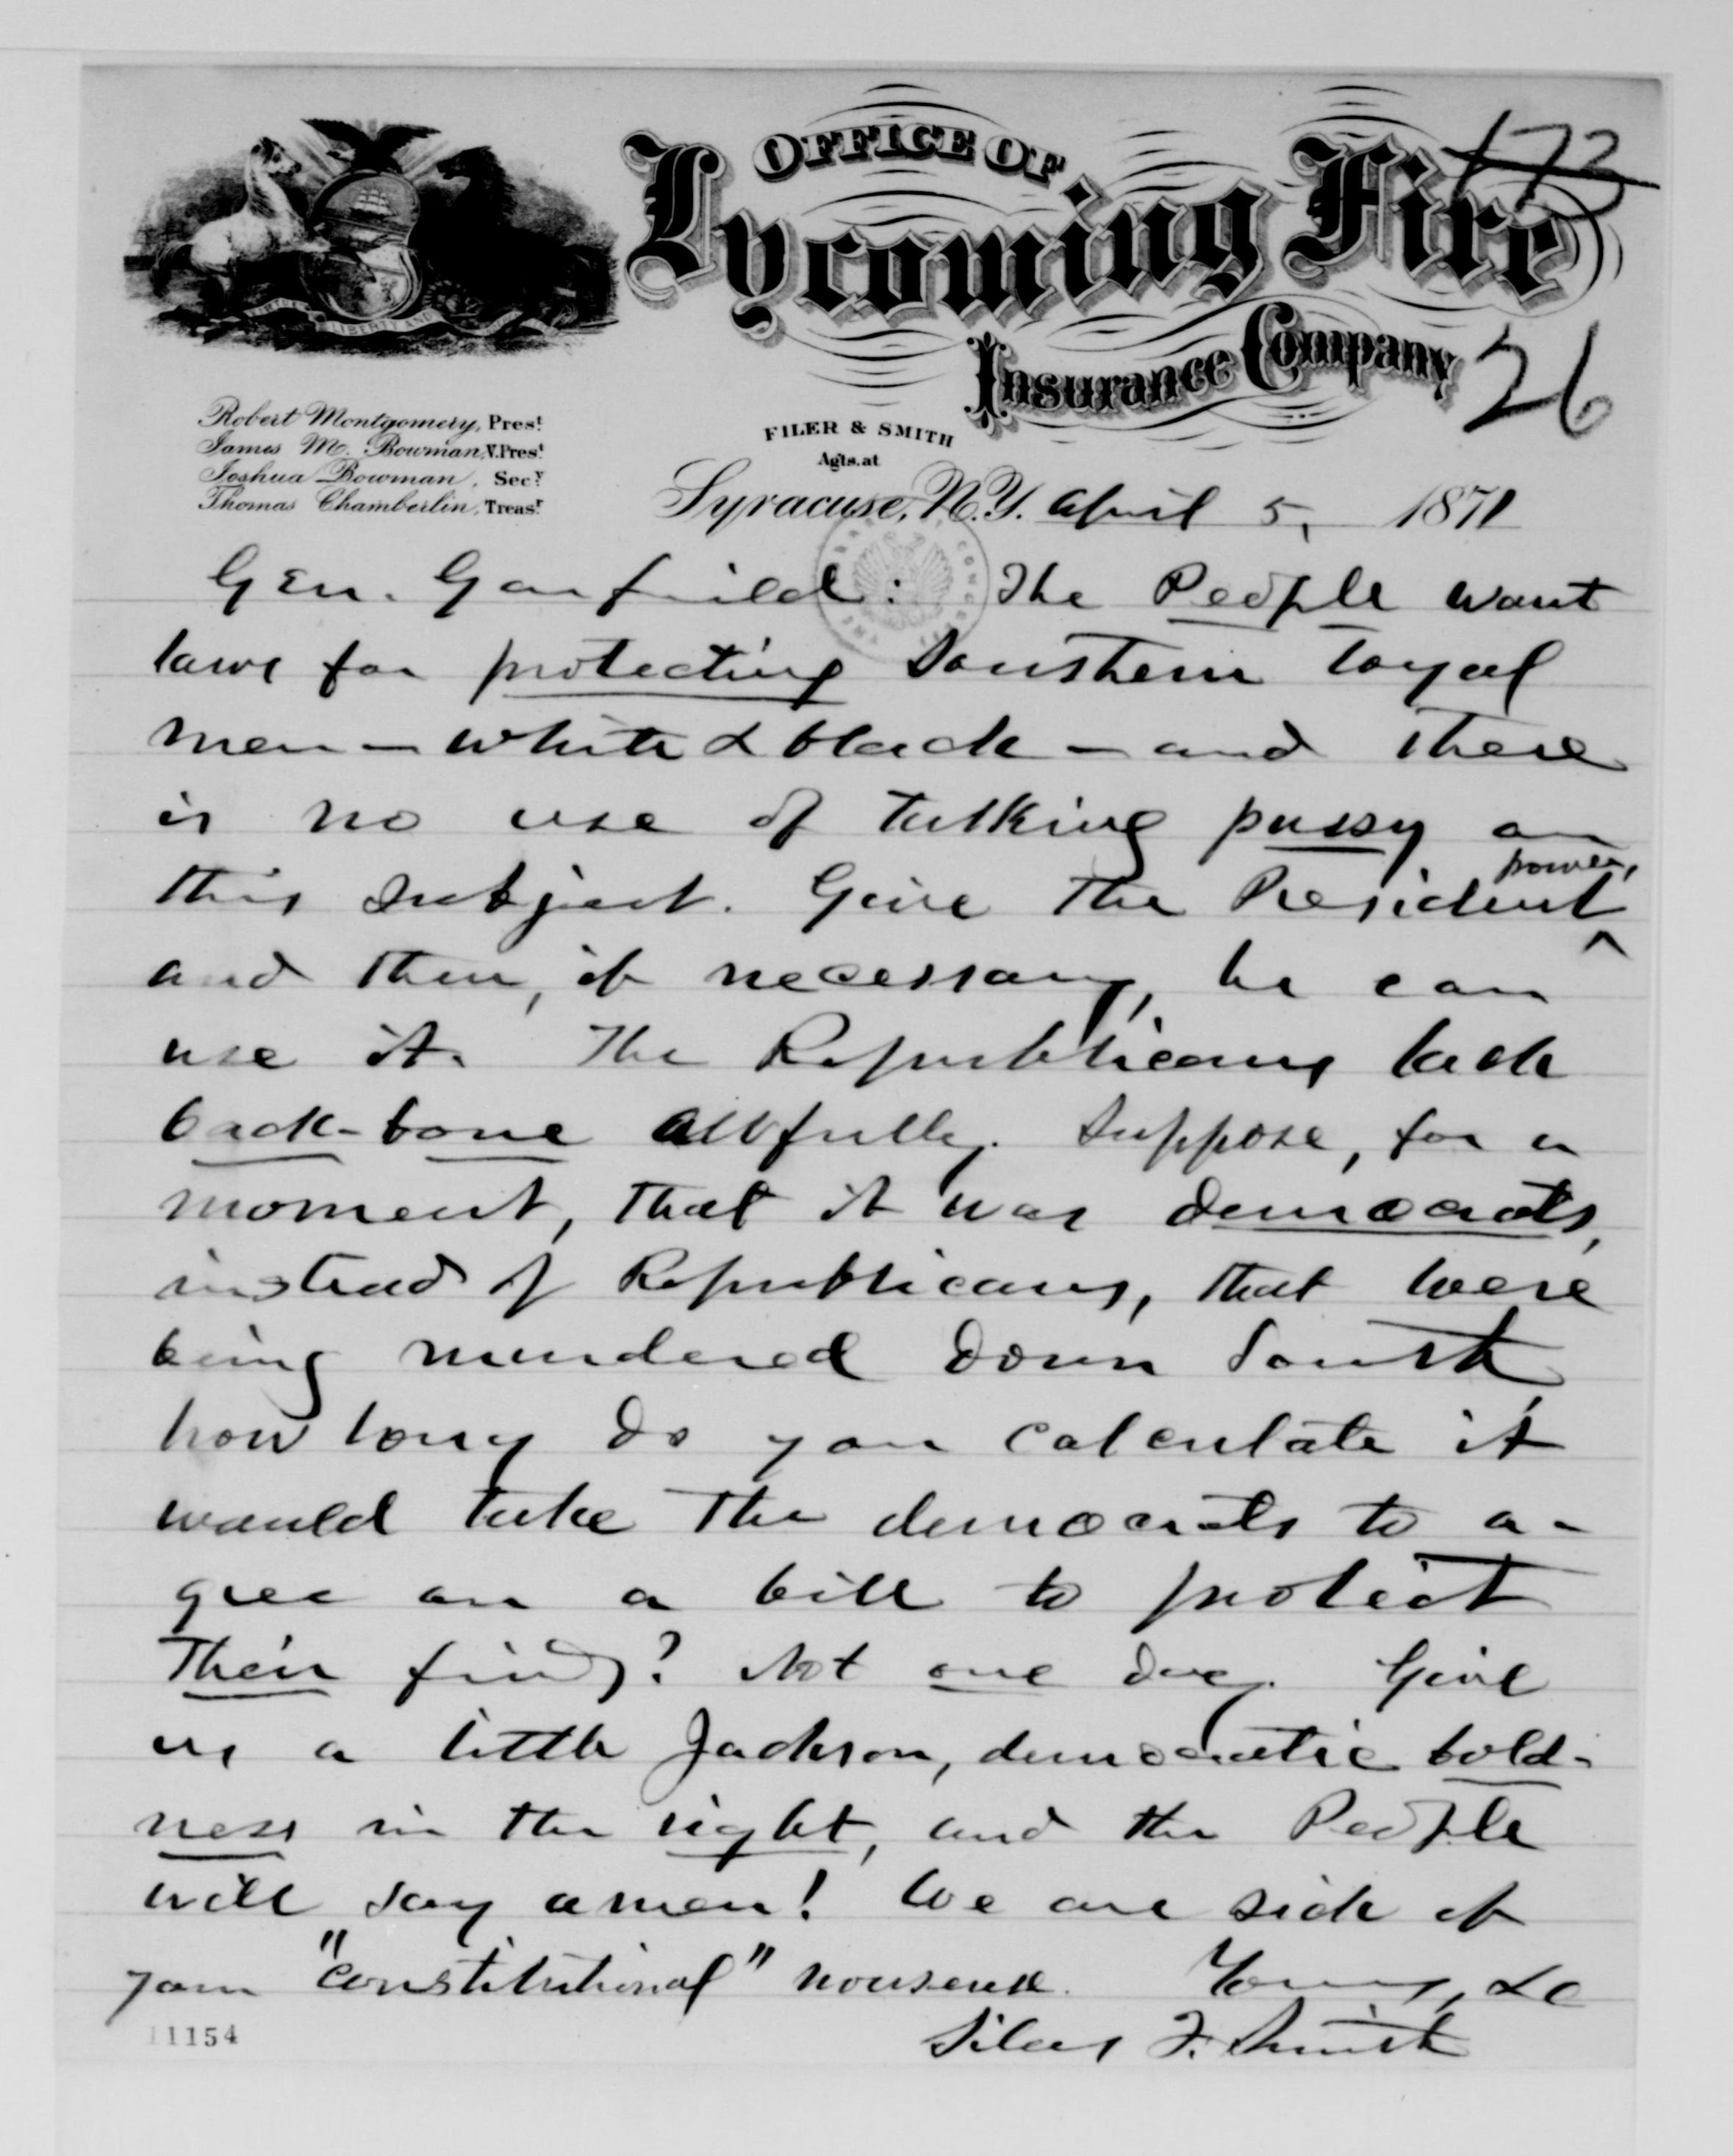 173
OFFICE OF
Lycoming Fire
Insurance Company
26
Robert Montgomery, Prest.
James M. Bowman, V. Prest.
Joshua Bowman, Secy.
Thomas Chamberlin, Treasr.
FILER & SMITH
Agts. at
Syracuse, N.Y. April 5, 1871
Gen. Garfield: The People want
laws for protecting Southern loyal
men — white & black — and there
is no use of talking pussy on
power,
this subject. Give the President ^
and then, if necessary, he can
use it. The Republicans lack
back-bone awfully. Suppose, for a
moment, that it was democrats,
instead of Republicans, that were
being murdered down South,
how long do you calculate it
would take the democrats to a-
gree on a bill to protect
their finds? Not one day. Give
us a little Jackson, democratic bold-
ness in the right, and the People
will say amen! We are sick of
your "constitutional" nonsense. Yours, &c
Silas F. Smith
11154